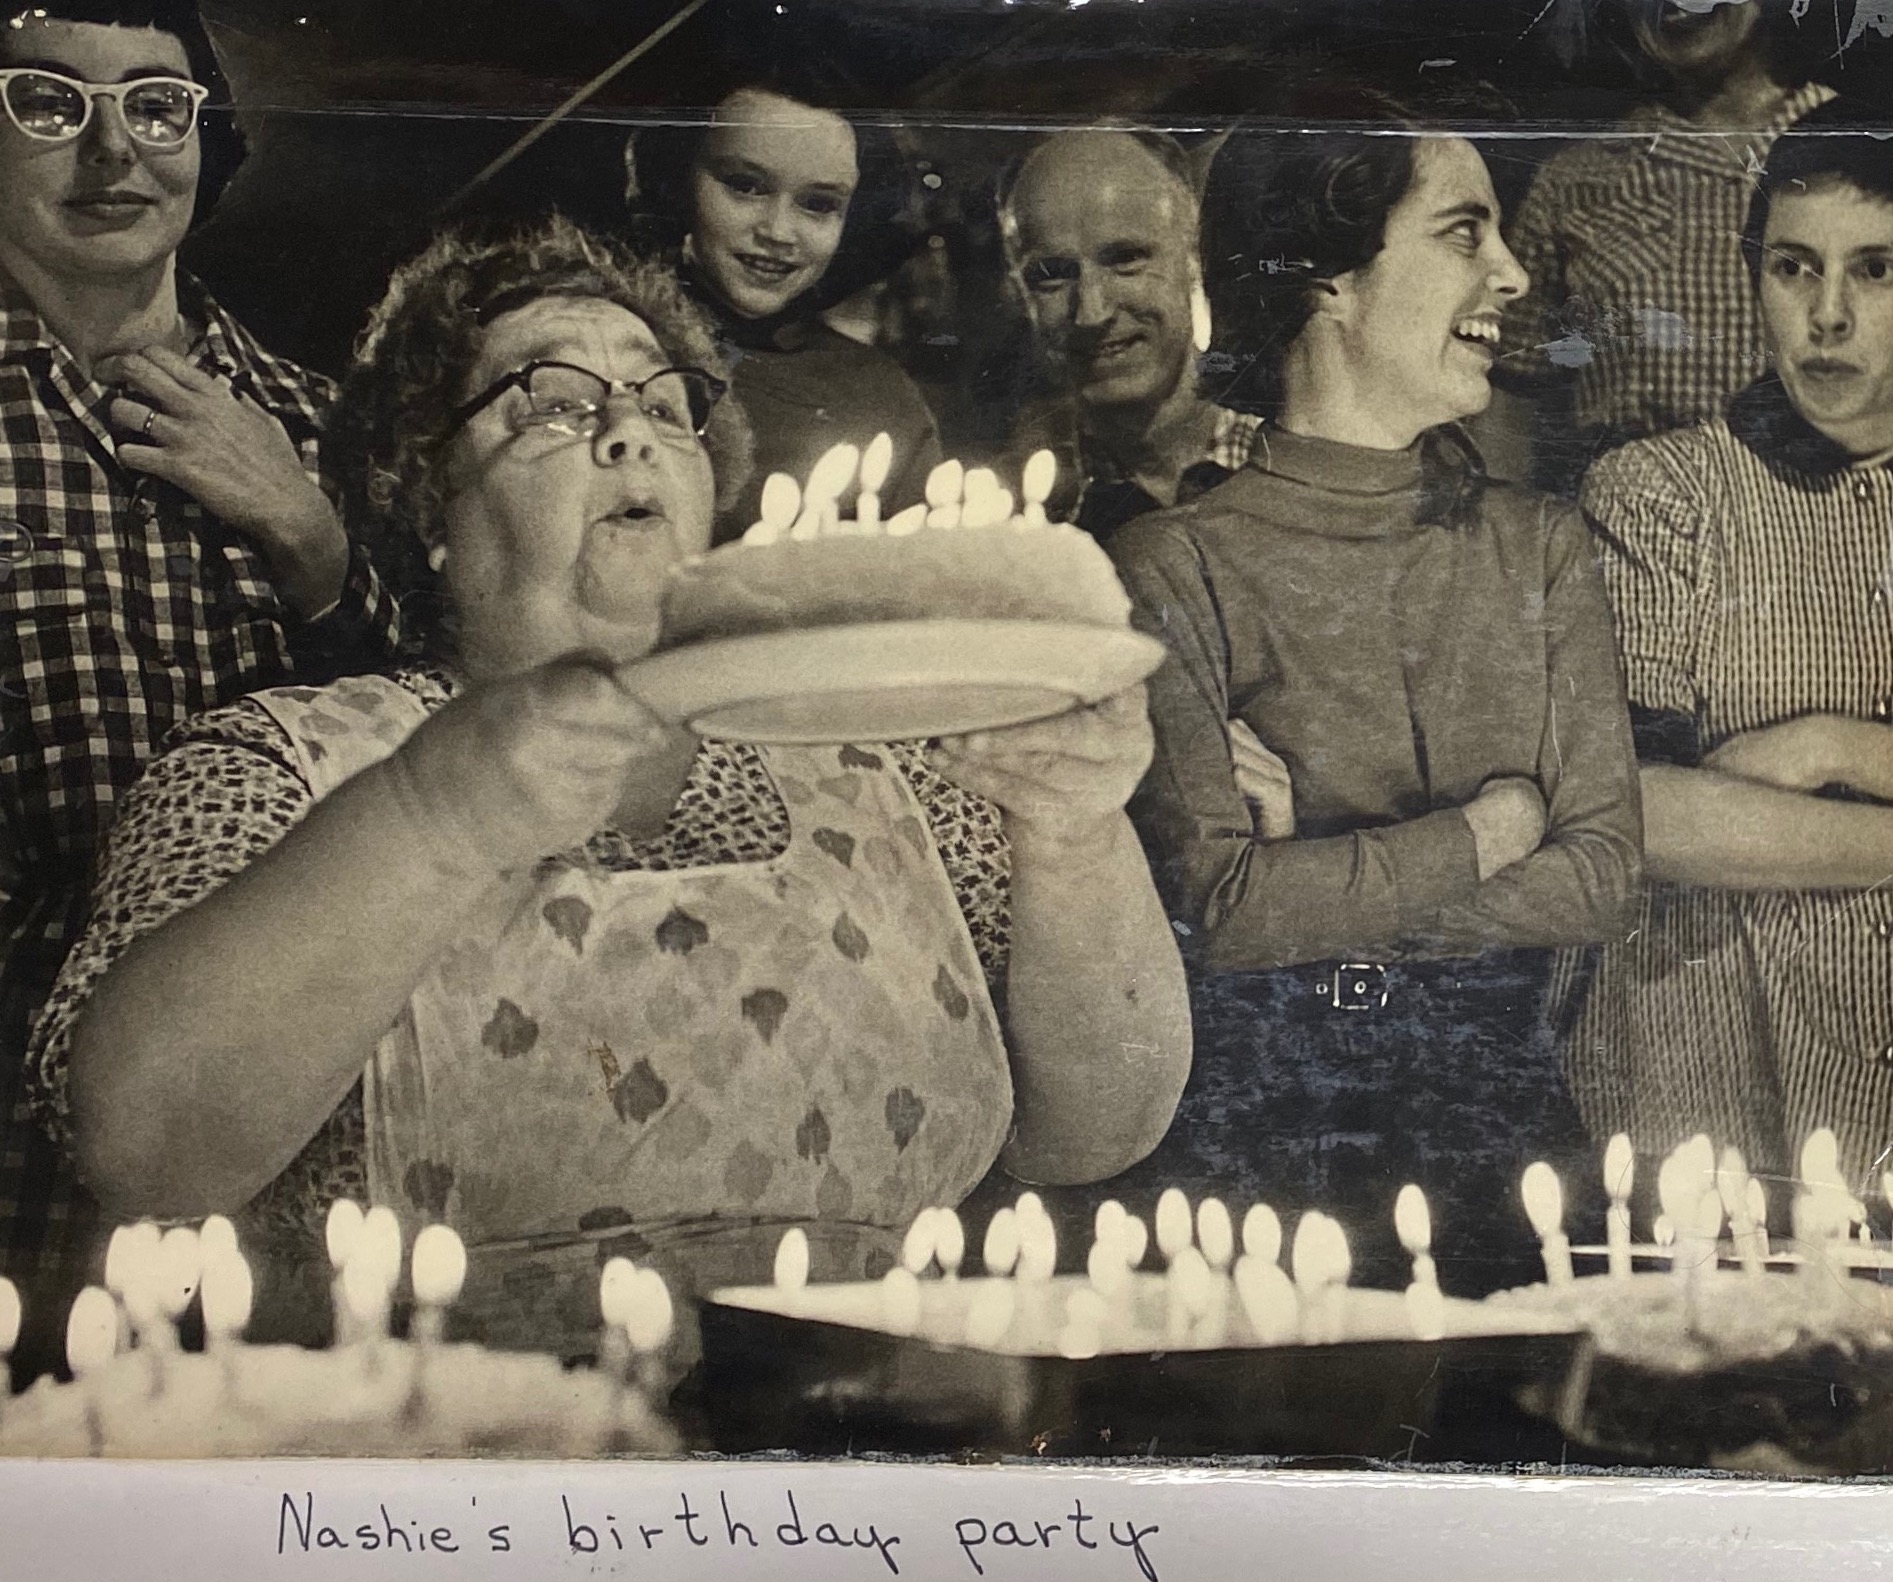 Nashie's birthday party